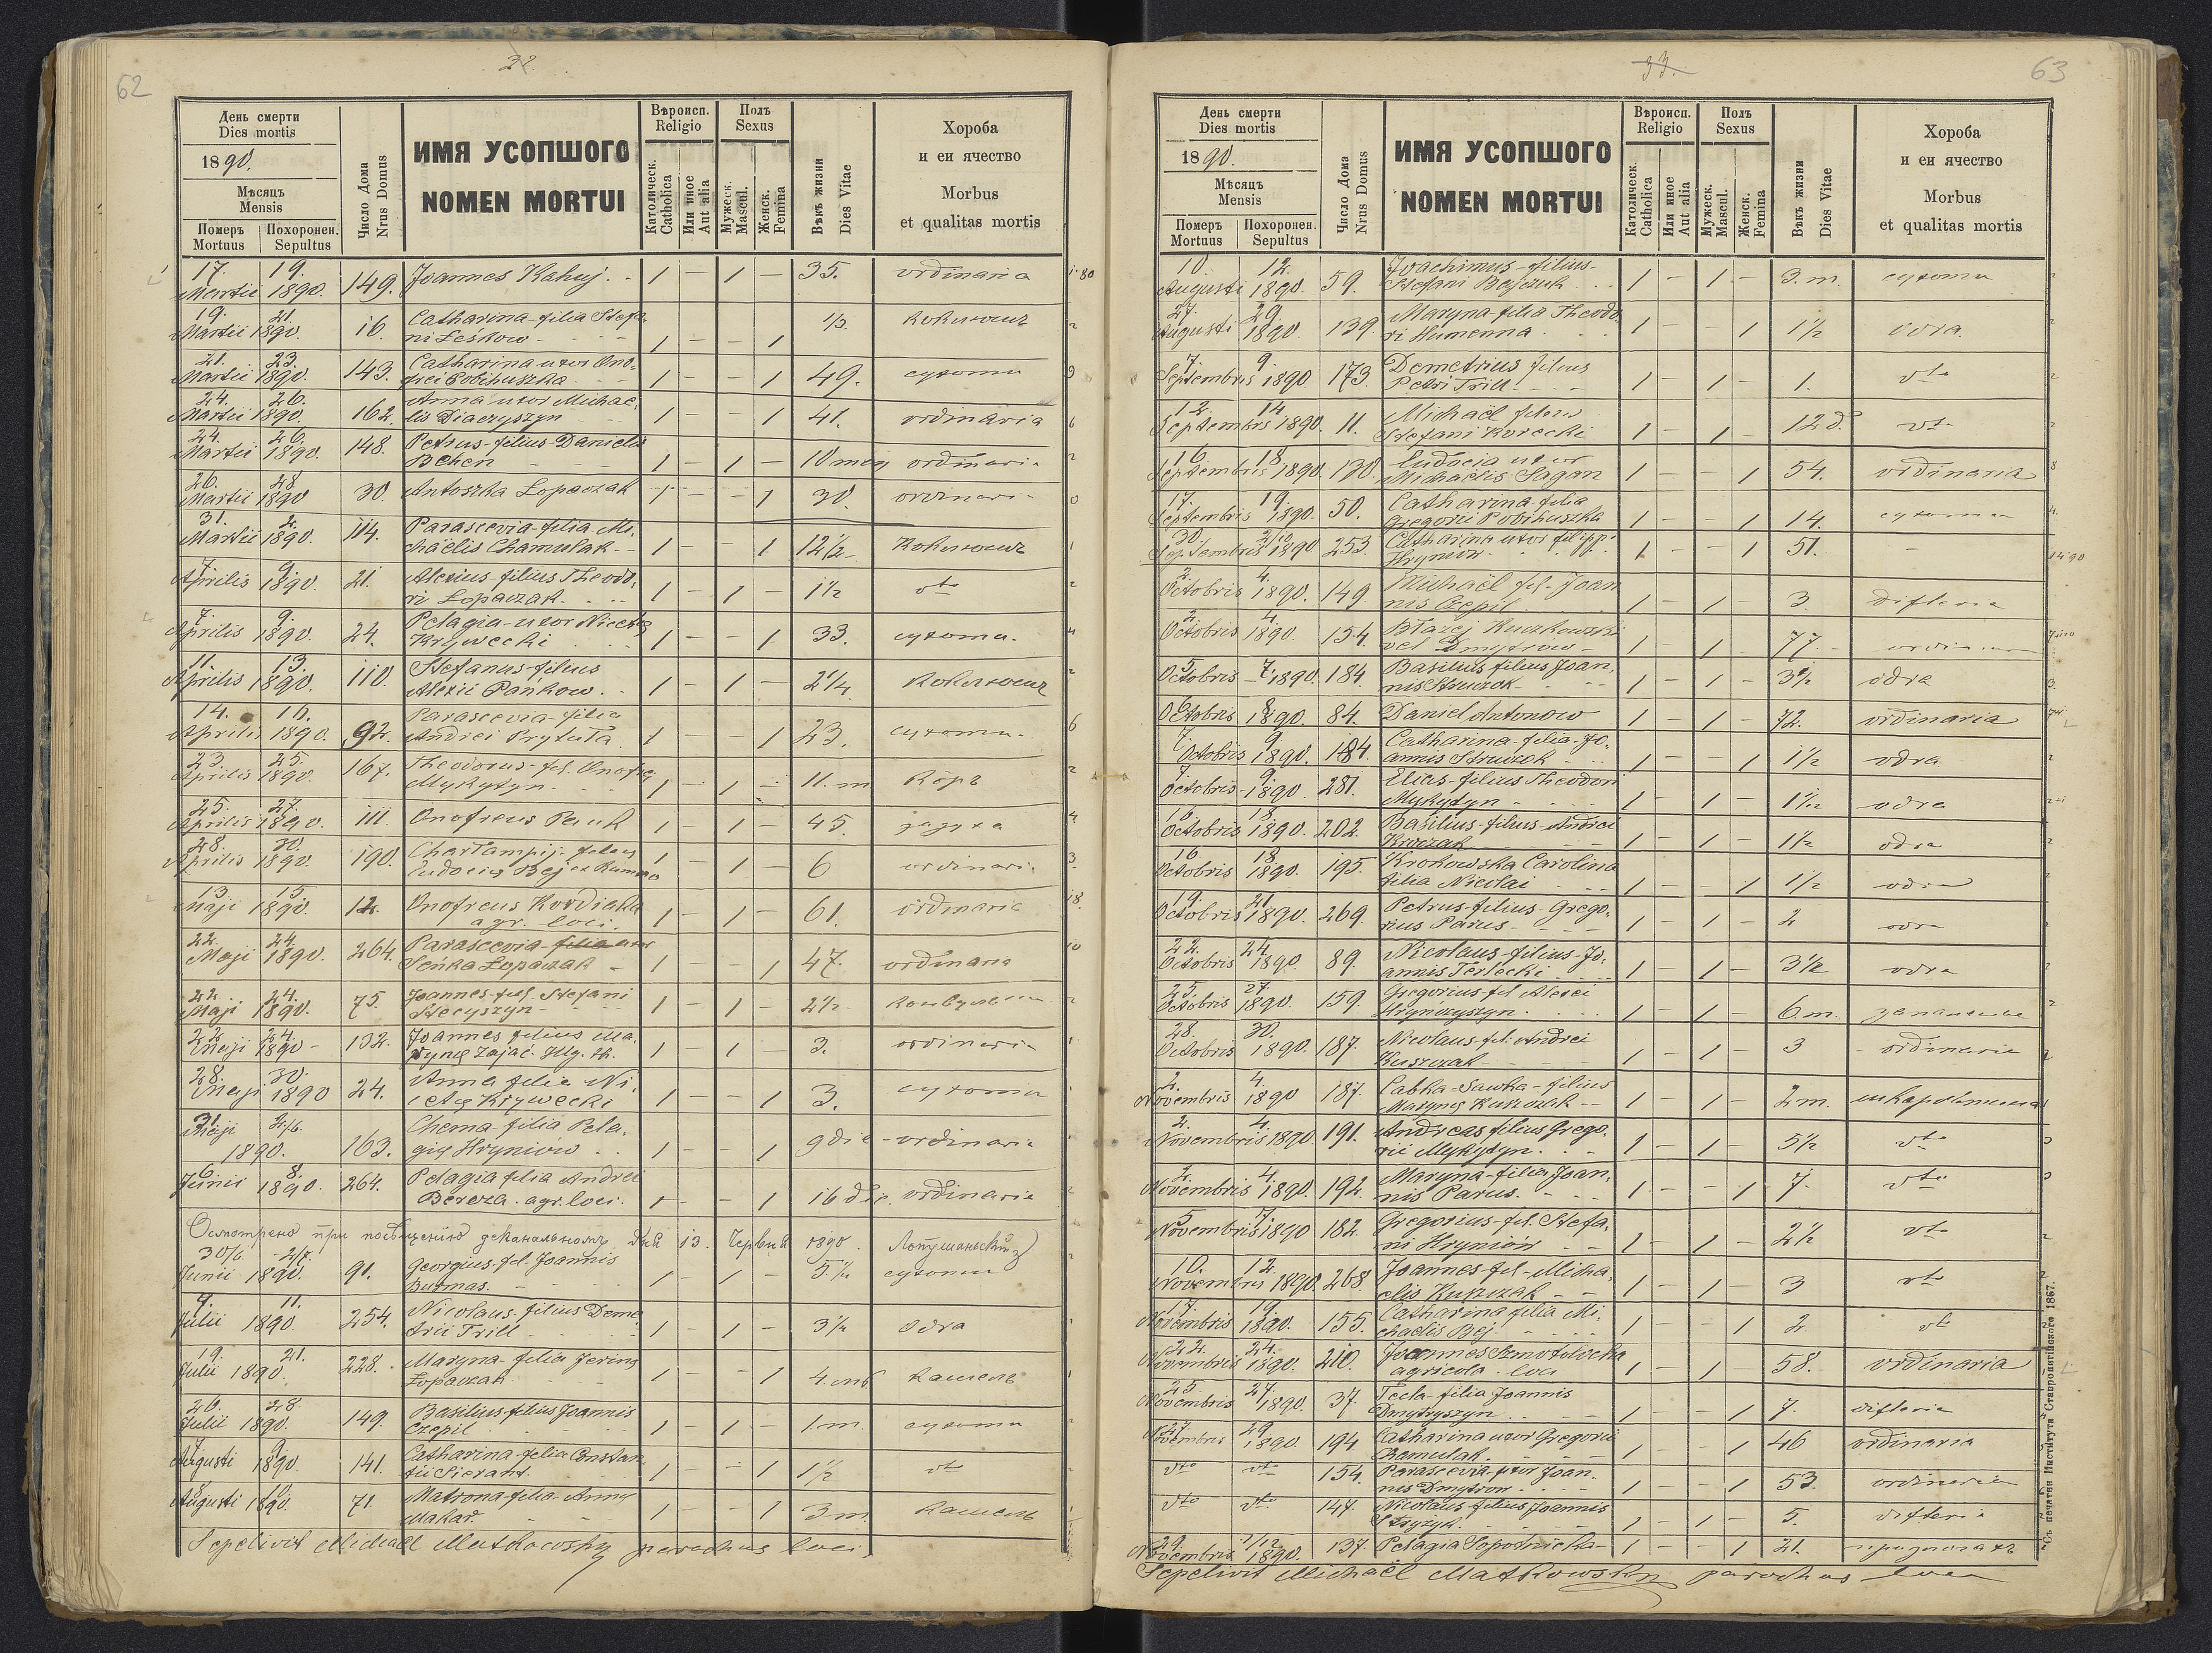 62
32.
День смерти
Dies mortis
1890.
Мѣсяцъ
Mensis
Померъ
Mortuus
Похоронен.
Sepultus
Число Дома
Nrus Domus
ИМЯ УСОПШОГО
NOMEN MORTUI
Вѣроисп.
Religio
Католическ.
Catholica
Или иное
Aut alia
Полъ
Sexus
Мужеск.
Mascul.
Женск.
Femina
Вѣкъ жизни
Dies Vitae
Хороба
и еи ячество
Morbus
et qualitas mortis
17. 19.
Martii 1890. 149. Joannes Kahuj. 1 – 1 – 35. ordinaria
19. 21. Catharina filia Stefa-
Martii 1890. 16. ni Leśkow 1 – – 1 ½. коклюшъ
21. 23. Catharina uxor Ono-
Martii 1890. 143. frei Pobihuszka 1 – – 1 49. сухоти
24. 26. Anna uxor Michae-
Martii 1890. 162. lis Diaczyszyn 1 – – 1 41. ordinaria
24. 26. Petrus filius Danielis
Martii 1890. 148. 1 – 1 – 10 men ordinaria
26. 28
Martii 1890 30. Antoszka Łopaczak 1 – – 1 30. ordinari-
31. 2. Parascevia filia Mi-
Martii 1890. 114. chaëlis Chamulak 1 – – 1 12½ коклюшъ
7. 9. Alexius filius Theodo-
Aprilis 1890. 21. ri Łopaczak 1 – 1 – 1½ vto
7. 9. Pelagia uxor Nicetę
Aprilis 1890. 24. Krywecki 1 – – 1 33. сухоти.
11. 13. Stefanus filius
Aprilis 1890. 110. Alexii Pańkow. 1 – 1 – 2¼ коклюшъ
14. 16. Parascevia filia
Aprilis 1890. 92. Andrei Prytuła 1 – – 1 23. сухоти.
23. 25. Theodorus fil. Onofrei
Aprilis 1890. 167. Mykytyn 1 – 1 – 11. m кôръ
25. 27.
Aprilis 1890. 111. Onofreus Pauk 1 – 1 – 45.
28. 30. Charłampij filius
Aprilis 1890. 190. Eudociæ Bej 1 – 1 6 ordinari-
13 15.
Maji 1890. 12. Onofreus Kordiaka 1 – 1 – 61. ordinaria
agr. loci.
22. 24. Parascevia filia uxor
Maji 1890. 264. Seńka Łopaczak 1 – – 1 47. ordinaria
22. 24. Joannes fil. Stefani
Maji 1890. 75. Stecyszyn 1 – 1 – 2½
22 24 Joannes filius Ma-
Maji 1890 132. rynę Zając. 1 – 1 – 3. ordinari-
28. 30. Anna filia Ni-
Maji 1890 24. cetę Krywecki 1 – – 1 3. сухоти
31. 2/6. Chema filia Pela-
Maji 1890. 163. gię Hryniów 1 – – 1 9 die ordinaria
6. 8. Pelagia filia Andrei
Junii 1890. 264. Bereza agr. loci. 1 – – 1 16 die. ordinaria
Осмотрено при посѣщенію деканальномъ дня 13. Червня 1890. Лопушаньскій
30/6. 2/7. Georgius fil. Joannis
Junii 1890. 91. Burmas. 1 – 1 – 5½ сухоти
9. 11. Nicolaus filius Deme-
Julii 1890. 254. trii Trill 1 – 1 – 3½ odra
19. 21. Maryna filia Jerina
Julii 1890. 228. Łopaczak 1 – – 1 4 кашель
26. 28. Basilius filius Joannis
Julii 1890. 149. Czepil 1 – 1 – 1. m. сухоти
7 9 Catharina filia Constan-
Augusti 1890. 141. tii Sierant 1 – – 1 1½ vto
Matrona filia Annę
Augusti 1890. 71. Makar. 1 – – 1 3 m. кашель
Sepelivit Michaël Matkowsky parochus loci
63
33.
День смерти
Dies mortis
1890.
Мѣсяцъ
Mensis
Померъ
Mortuus
Похоронен.
Sepultus
Число Дома
Nrus Domus
ИМЯ УСОПШОГО
NOMEN MORTUI
Вѣроисп.
Religio
Католическ.
Catholica
Или иное
Aut alia
Полъ
Sexus
Мужеск.
Mascul.
Женск.
Femina
Вѣкъ жизни
Dies Vitae
Хороба
и еи ячество
Morbus
et qualitas mortis
10. 12. Joachimus filius
Augusti 1890. 59. Stefani Bojczuk 1 – 1 – 3. m. сухоти
27. 29. Maryna filia Theodo-
Augusti 1890. 139. ri Humenna 1 – – 1 1½ odra
7. 9. Demetrius filius
Septembris 1890. 173. Petri Trill 1 – 1 – 1. vto
12. 14 Michaël filius
Septembris 1890. 11. Stefani Korecki 1 – 1 – 12 d. vto
16 18 Eudocia uxor
Septembris 1890. 130 Michaëlis Sagan 1 – – 1 54. ordinaria
17. 19. Catharina filia
Septembris 1890. 50. Gregorii Pobihuszka 1 – – 1 14. сухоти
30. 2/10 Catharina uxor filipp.
Septembris 1890. 253. Hryniow 1 – – 1 51. –
2. 4. Michaël fil. Joan-
Octobris 1890. 149. nis Czepil 1 – 1 – 3 difteria
2 4. Błażej Kuczkowski
Octobris 1890. 154. vel Dmytrow 1 – 1 – 77.
5 7. Basilius filius Joan-
Octobris 1890. 184. nis Struczok 1 – 1 – 3½ odra
6 8
Octobris 1890. 84. Daniel Antonow 1 – 1 – 72. ordinaria
7. 9 Catharina filia Jo-
Octobris 1890. 184. annis Struczok 1 – – 1 1½ odra
7 9. Elias filius Theodori
Octobris 1890. 281. Mykytyn 1 – 1 – 1½ odra
16. 18. Basilius filius Andrei
Octobris 1890. 202. 1 – 1 – 1½ odra
16 18. Krokowska Carolina
Octobris 1890. 195. filia Nicolai 1 – – 1 1½ odra
19. 21 Petrus filius Grego-
Octobris 1890. 269. rius Parus 1 – 1 – 2 odra
22. 24. Nicolaus filius Jo-
Octobris 1890. 89. annis Terlecki 1 – 1 – 3½ odra
25. 27. Gregorius fil Alexei
Octobris 1890. 159. Hrynczyszyn. 1 – 1 – 6. m.
28. 30. Nicolaus fil. Andrei
Octobris 1890. 187. Kuszczak 1 – 1 – 3 ordinaria
2. 4. Sawka filius
Novembris 1890 187. Marynę Kuszczak 1 – 1 – 2 m. шкарлятина
2. 4. Andreas filius Grego-
Novembris 1890. 191. rii Mykytyn 1 – 1 – 5½ vto
2. 4. Maryna filia Joan-
Novembris 1890. 192. nis Parus. 1 – – 1 7. vto
5 7. Gregorius fil. Stefa-
Novembris 1890 182. ni Hryniów 1 – 1 – 2½ vto
10. 12. Joannes fil Micha-
Novembris 1890. 268. elis Kuszczak 1 – 1 – 3 vto
17. 19 Catharina filia Mi-
Novembris 1890. 155. chaelis Bej 1 – – 1 2. vto
22. 24. Joannes
Novembris 1890. 210. agricola loci 1 – 1 58. ordinaria
25. 27. Tecla filia Joannis
Novembris 1890. 37. Dmytryszyn 1 – – 1 7. difteria
27. 29. Catharina uxor Gregorii
Novembris 1890. 194 1 – – 1 46 ordinaria
vto vto 154. Parascevia uxor Joan-
nis Dmytrow 1 – – 1 53. ordinaria
vto vto 147. Nicolaus filius Joannis
Stryżyk. 1 – 1 – 5. difteri-
29. 1/12
Novembris 1890. 137 Pelagia 1 – – 1 21.
Sepelivit Michaël Matkowsky parochus loci
Съ печатни Института Ставропигійского 1867.